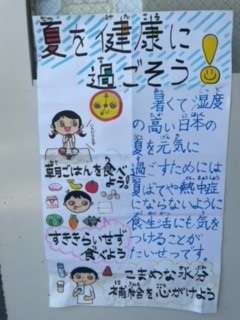 夏を健康に
過ごそう!
暑くて湿度
の高い日本の
夏を元気に
過ごすためには
夏ばてや熱中症
にならないように
食生活にも気を
つけることが
たいせつです。
朝ごはんを食べ
よう!
すききらいせず
食べよう
こまめな水分
補給を心がけよう